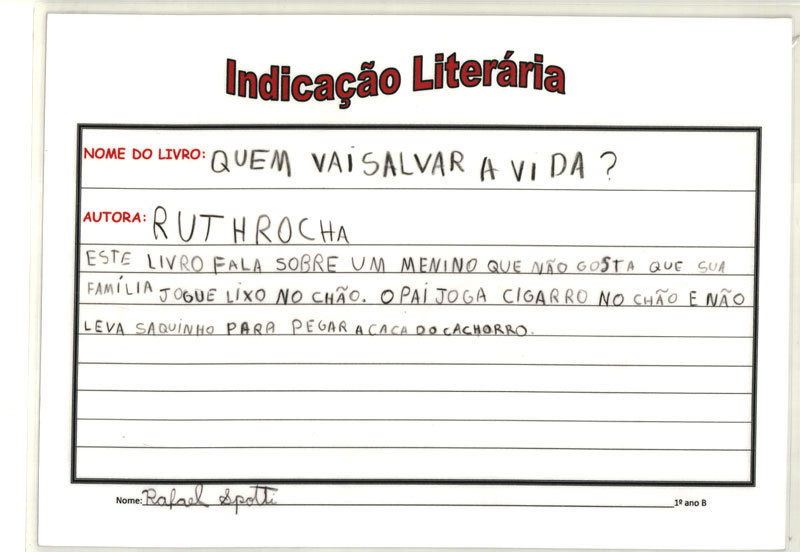 Indicação Literária
NOME DO LIVRO: QUEM VAI SALVAR A VIDA?
AUTORA: RUTH ROCHA
ESTE LIVRO FALA SOBRE UM MENINO QUE NÃO GOSTA QUE SUA
FAMÍLIA JOGUE LIXO NO CHÃO. O PAI JOGA CIGARRO NO CHÃO E NÃO
LEVA SAQUINHO PARA PEGAR A CACA DO CACHORRO.
Nome: Rafael Spotti 1º ano B